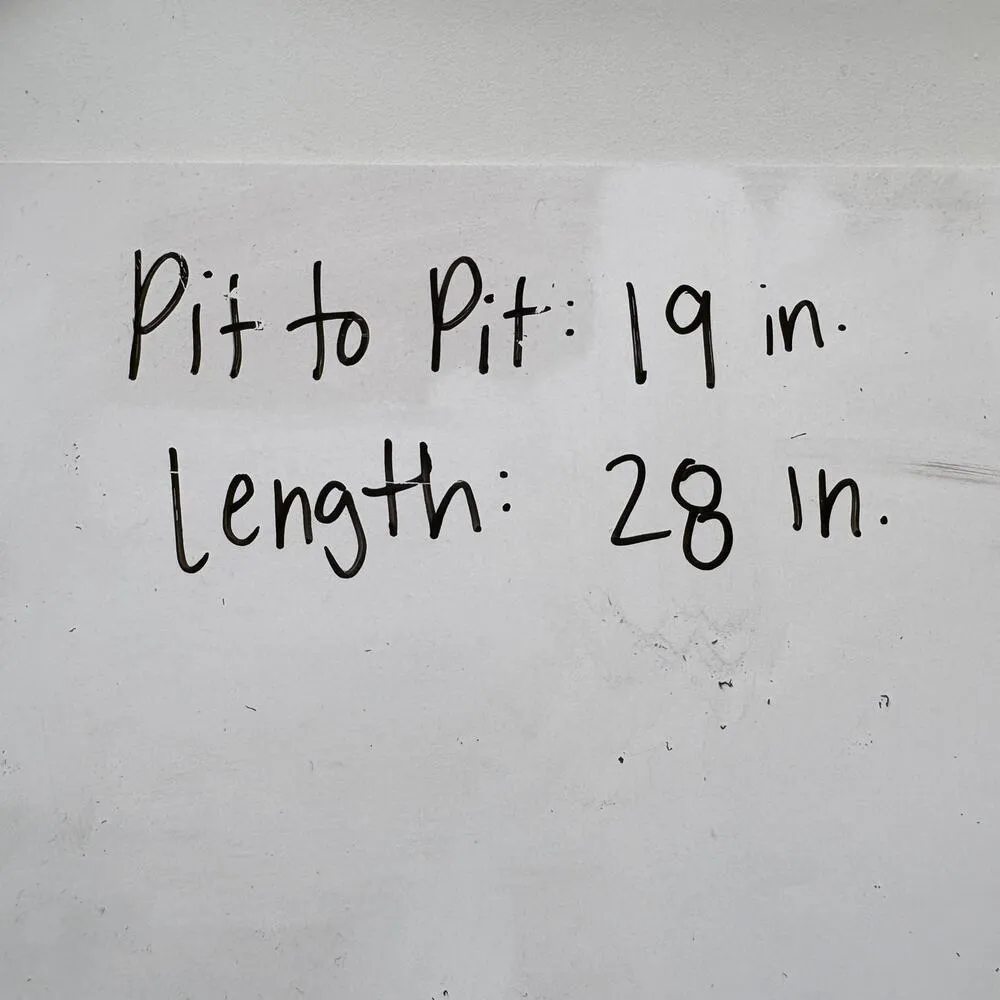 Pit to Pit: 19 in.
Length: 28 in.